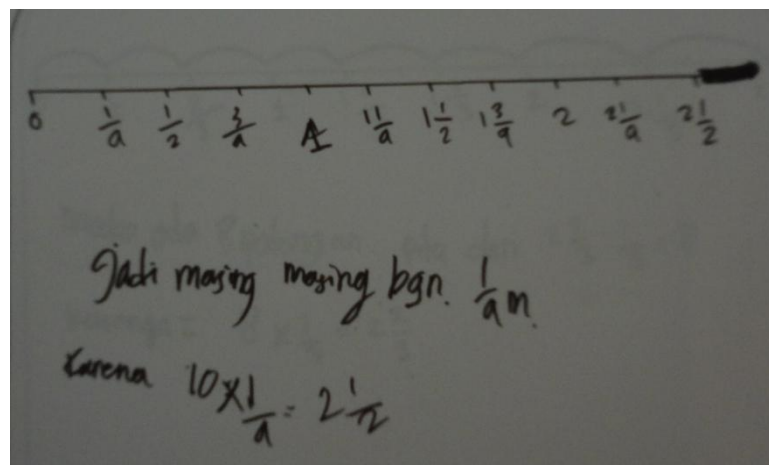 0 1/4 1/2 3/4 1 1 1/4 1 1/2 1 3/4 2 2 1/4 2 1/2
Jadi masing masing bgn. 1/4 m.
Karena 10 x 1/4 = 2 1/2